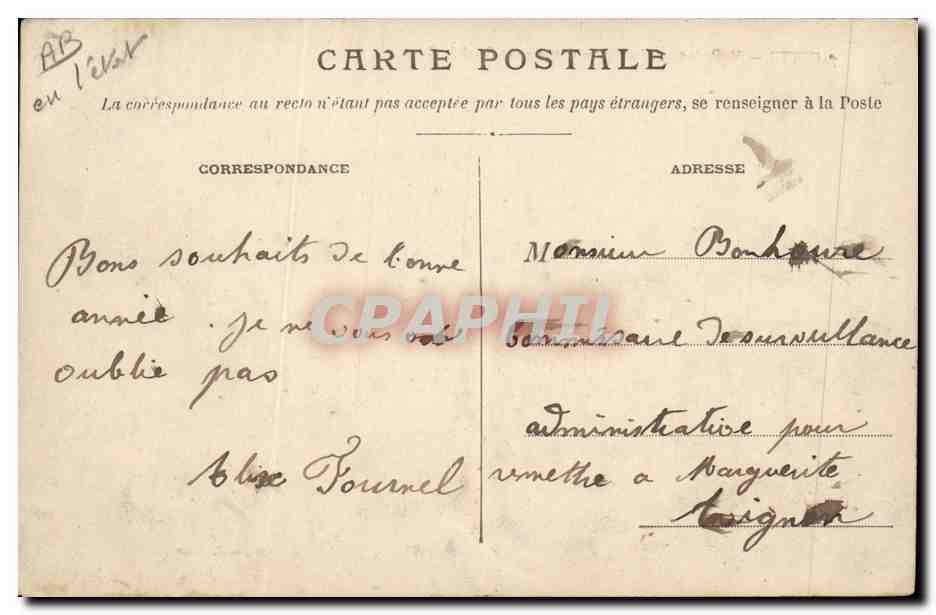 AB
en l'état
CARTE POSTALE
La correspondance au recto n'étant pas acceptée par tous les pays étrangers, se renseigner à la Poste
CORRESPONDANCE
Bons souhaits de bonne
année. je ne vous ai
oublie pas
Elise Fournel
CPAPHIL
ADRESSE
Monsieur Bonhoure
Commissaire de surveillance
administrative pour
remettre a Marguerite
Avignon